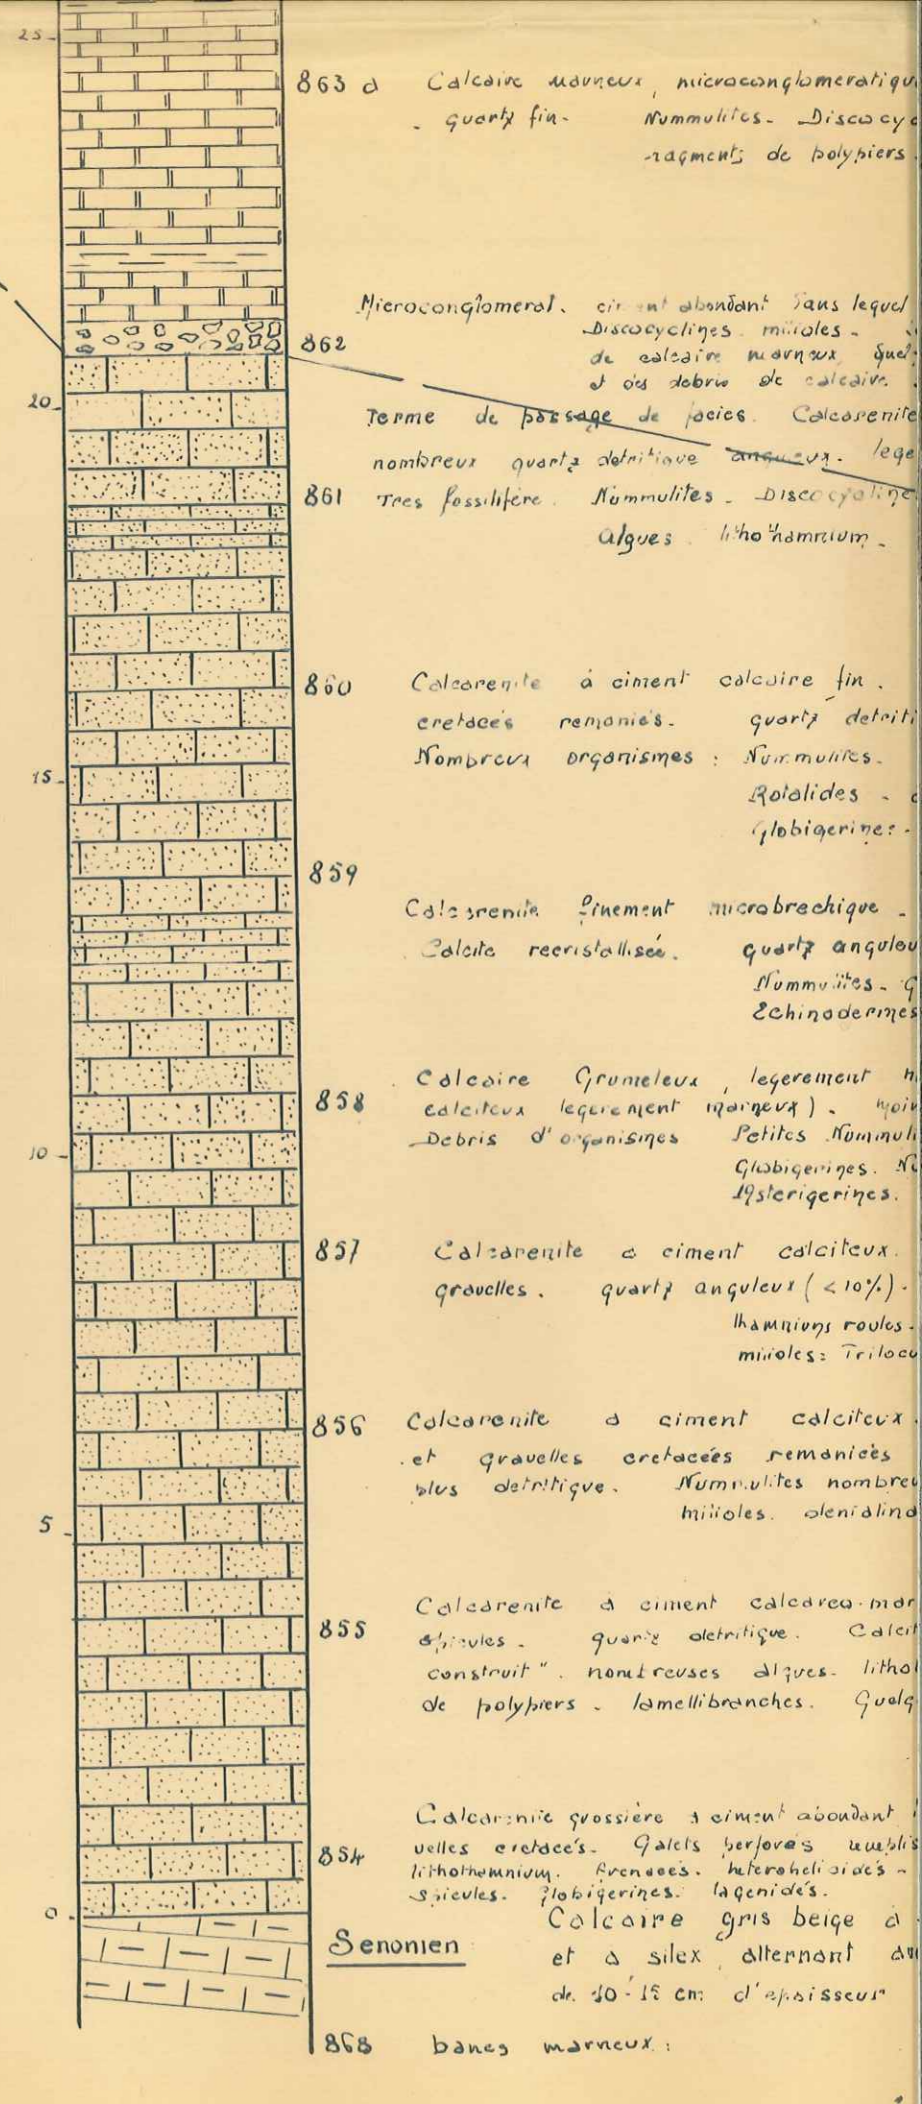 25
863 a Calcaire marneux, microconglomeratiqu
- quartz fin- Nummulites- Discocyc
-ragments de polypiers.
Microconglomerat. ciment abondant dans lequel
Discocyclines milioles -
de calcaire marneux Quel
862
et des debris de calcaire.
20
Terme de passage de facies. Calcarenite
nombreux quartz detritique anguleux. lege
861 Tres fossilifère. Nummulites - Discocycline
Algues. lithothamnium.
860 Calcarenite à ciment calcaire fin.
cretacés remaniés. quartz detriti
Nombreux organismes : Nummulites.
15
Rotalides -
Globigerines.
859
Calcarenite finement microbrechique -
Calcite recristallisée. quartz anguleu
Nummulites- G
Echinodermes
Calcaire Grumeleux, legerement
858 calciteux legerement marneux). moin
Debris d'organismes Petites Nummuli
10
Globigerines. Nu
Asterigerines.
857 Calcarenite a ciment calciteux.
gravelles. quartz anguleux (<10%).
thamniums roules.
milioles: Trilocu
856 Calcarenite a ciment calciteux.
et gravelles cretacées remaniées
plus detritique. Nummulites nombreu
milioles.
5
Calcarenite a ciment calcareo-mar
855 spicules. quartz detritique. Calcit
construit". nombreuses algues. lithol
de polypiers - lamellibranches. Quelq
Calcarenite grossière a ciment abondant
854 velles cretacés. Galets perforés
lithothamnium. Arenacés. heterohelicidés -
spicules. globigerines. lagenidés.
0
Calcaire gris beige a
Senonien et a silex alternant av
de 10-15 cm d'epaisseur
868 bancs marneux: